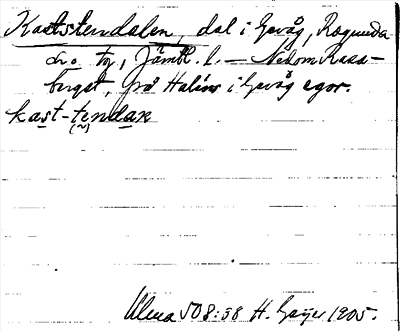 Kaststendalen, dal i Gevåg, Ragunda
s:n o. tg, Jämtl. l. — Nedom Kasa-
berget, på Haléns i Gevåg egor.
kast-tendan
(~)
Ulma 508:38 H. Geijer 1905.